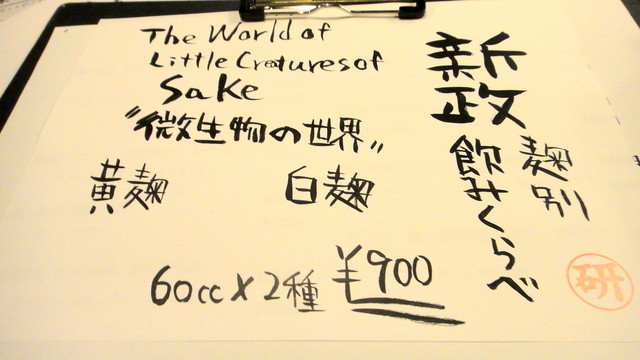 The World of
Little Creatures of
Sake
"微生物の世界"
黄麹 白麹
60cc×2種 ¥900
新政
麹別
飲みくらべ
研